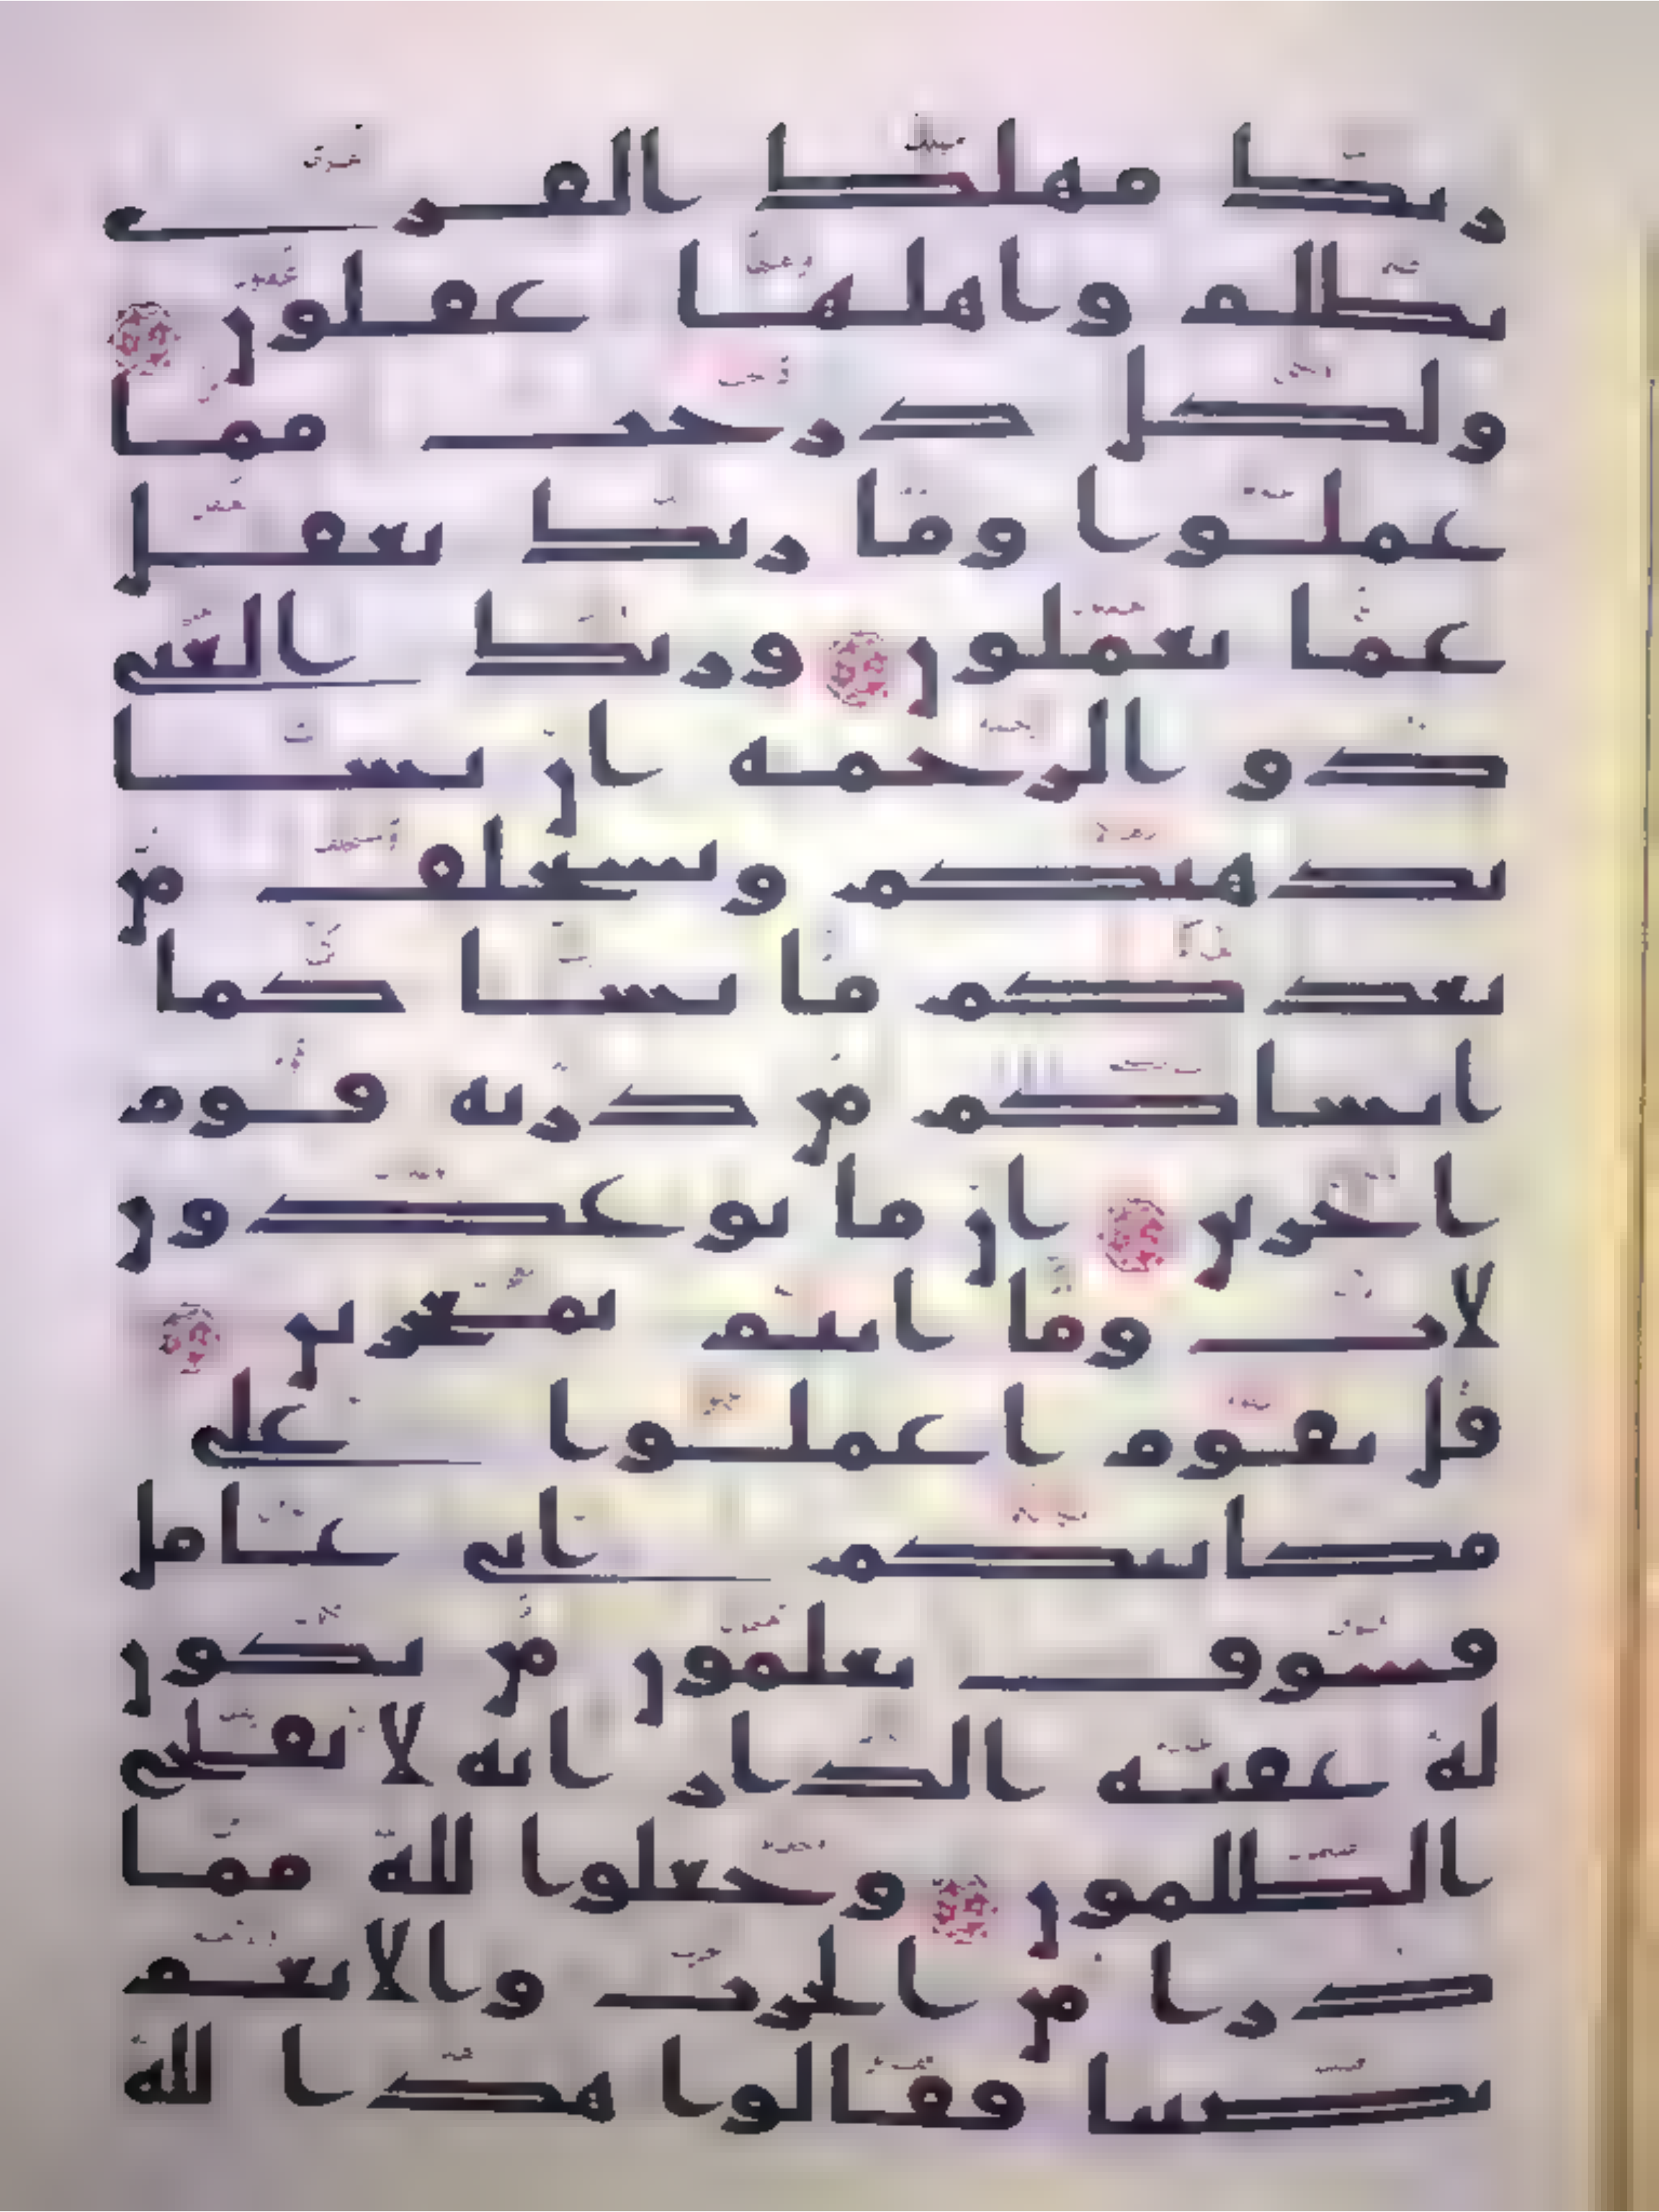 ربك مهلك القرى
بظلم واهلها غفلون
ولكل درجت مما
عملوا وما ربك بغفل
عما يعملون وربك الغنى
ذو الرحمة ان يشا
يذهبكم ويستخلف من
بعدكم ما يشا كما
انشاكم من ذرية قوم
اخرين ان ما توعدون
لات وما انتم بمعجزين
قل يقوم اعملوا على
مكانتكم انى عامل
فسوف تعلمون من تكون
له عقبة الدار انه لا يفلح
الظلمون وجعلوا لله مما
ذرا من الحرث والانعم
نصيبا فقالوا هذا لله